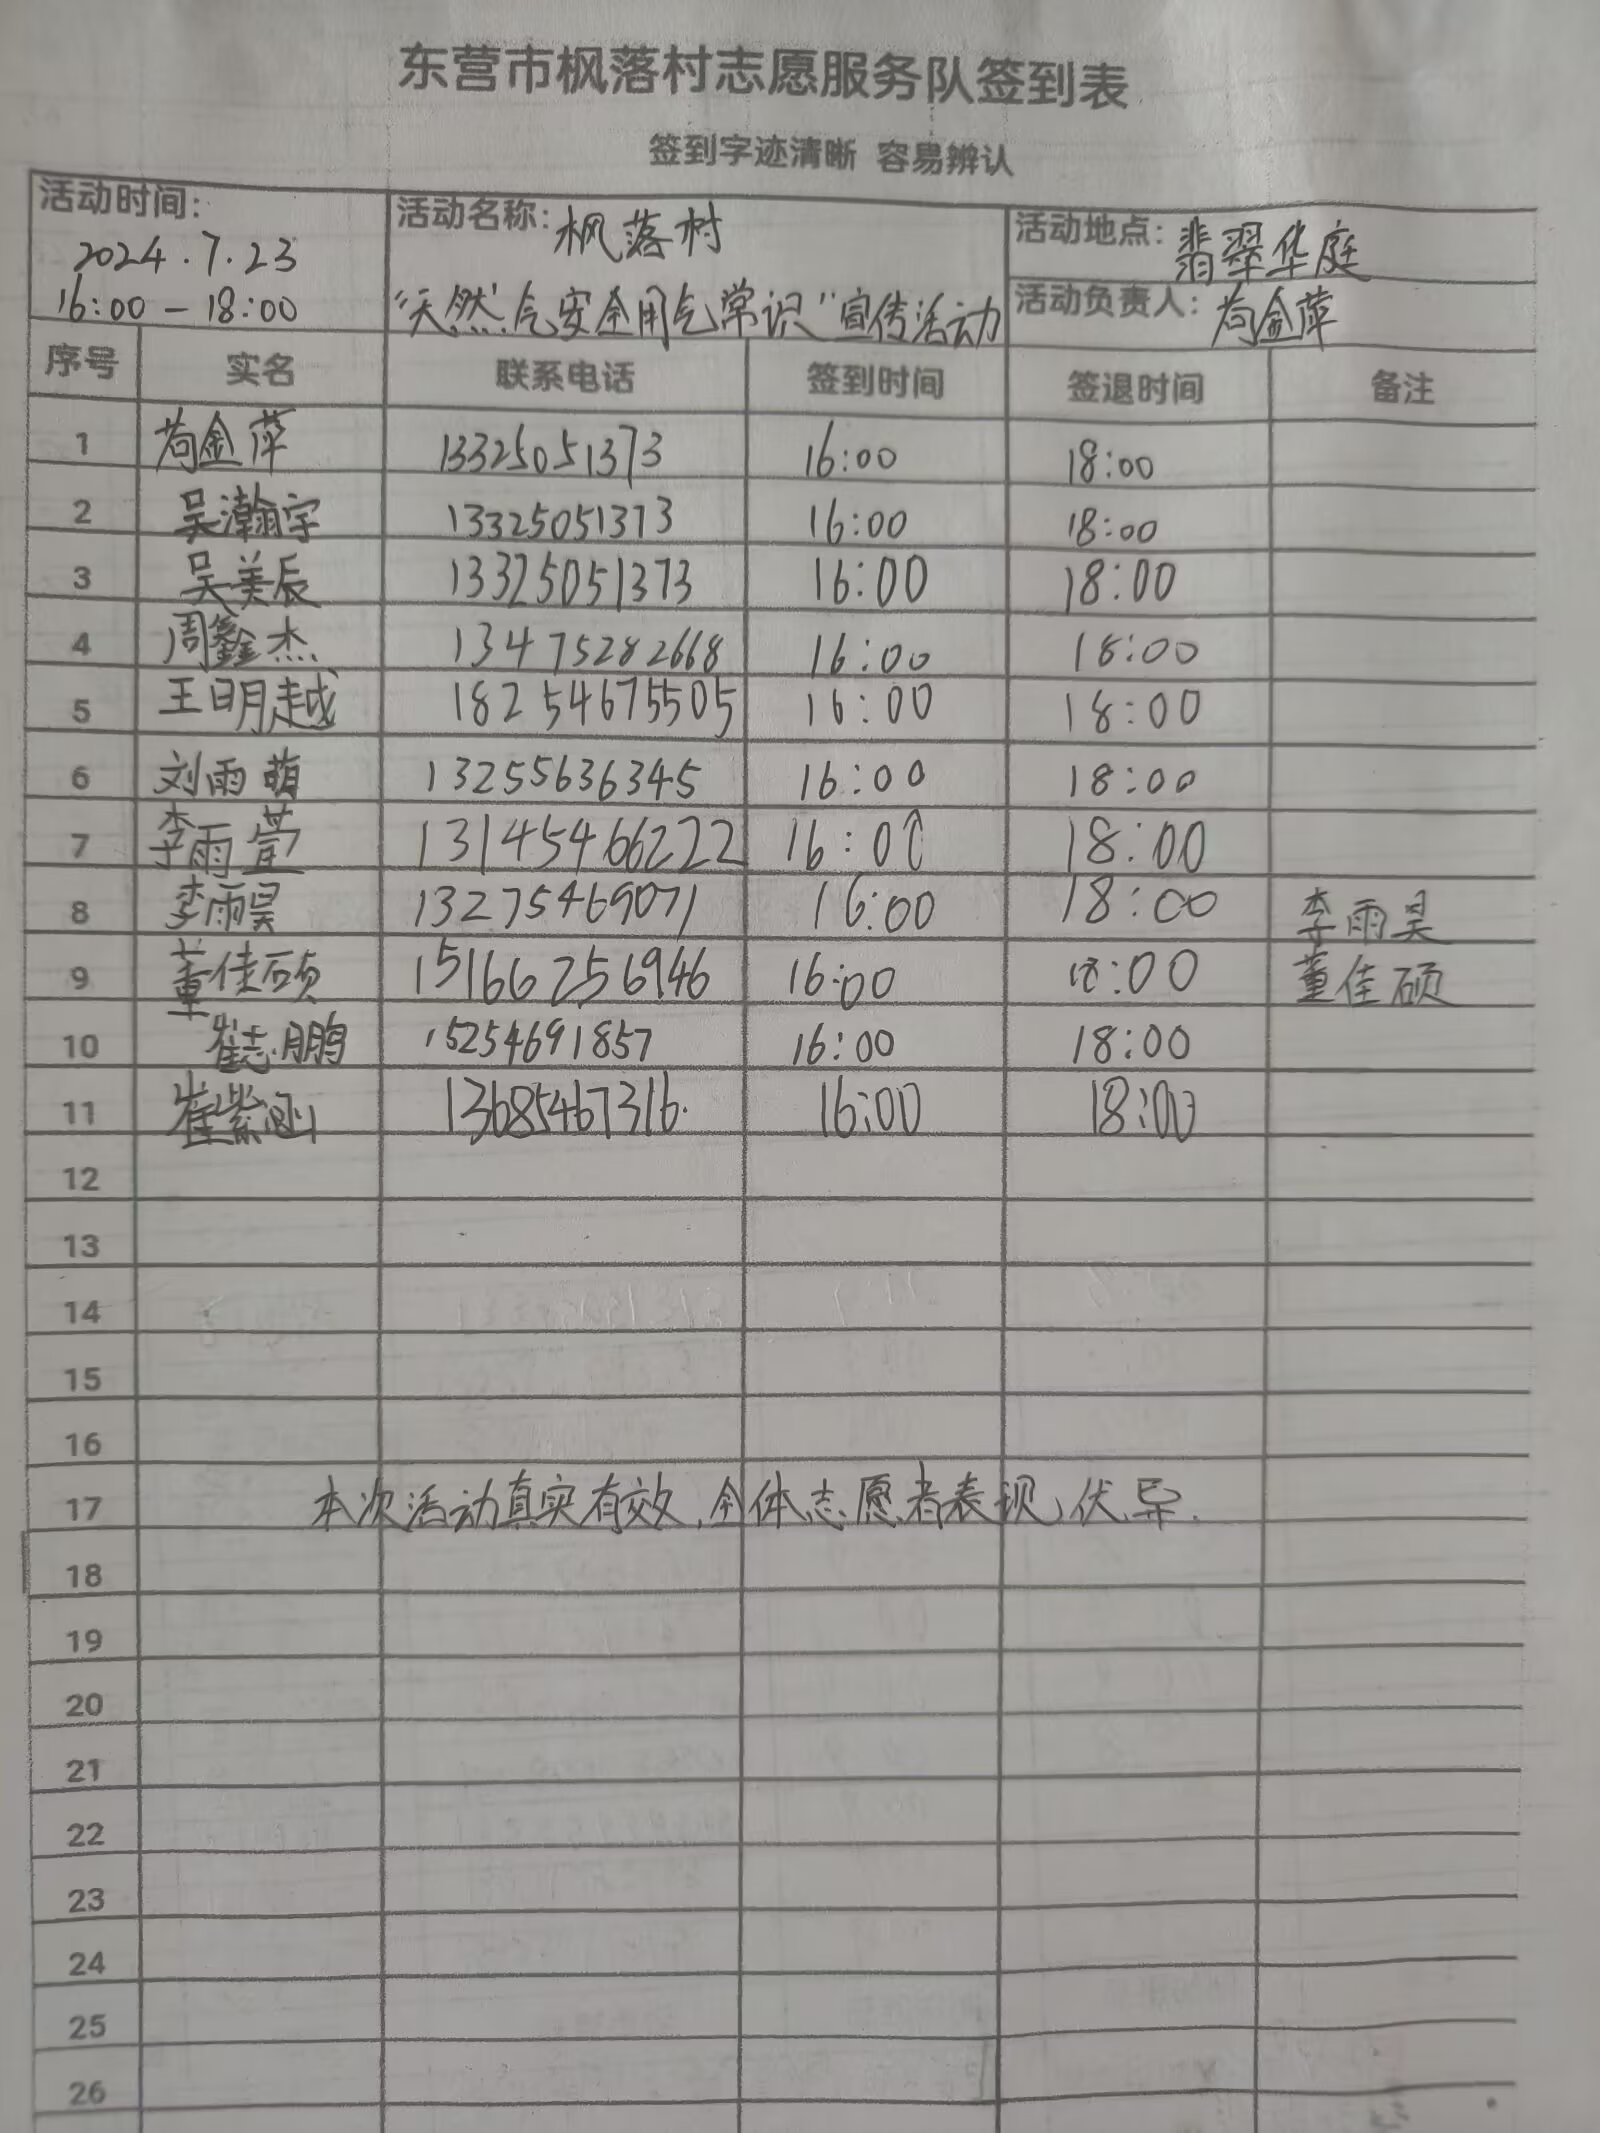 东营市枫落村志愿服务队签到表
签到字迹清晰 容易辨认
活动时间: 2024.7.23 16:00-18:00
活动名称: 枫落村 "天然气安全用气常识"宣传活动
活动地点: 翡翠华庭
活动负责人: 苟金萍
序号 实名 联系电话 签到时间 签退时间 备注
1 苟金萍 13325051373 16:00 18:00
2 吴瀚宇 13325051373 16:00 18:00
3 吴美辰 13325051373 16:00 18:00
4 周鑫杰 13475282668 16:00 18:00
5 王明越 18254675505 16:00 18:00
6 刘雨萌 13255636345 16:00 18:00
7 李雨萱 13145466222 16:00 18:00
8 李雨昊 13275469071 16:00 18:00 李雨昊
9 董佳硕 15166256946 16:00 18:00 董佳硕
10 崔志鹏 15254691857 16:00 18:00
11 崔紫涵 13685467316. 16:00 18:00
12
13
14
15
16
17 本次活动真实有效,全体志愿者表现优异.
18
19
20
21
22
23
24
25
26